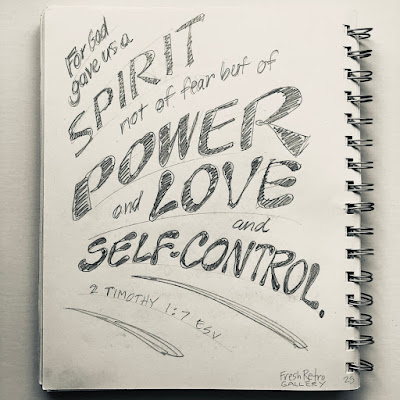 For God
gave us a
SPIRIT
not of fear but of
POWER
and LOVE
and
SELF-CONTROL.
2 TIMOTHY 1:7 ESV
FreshRetro
GALLERY
25